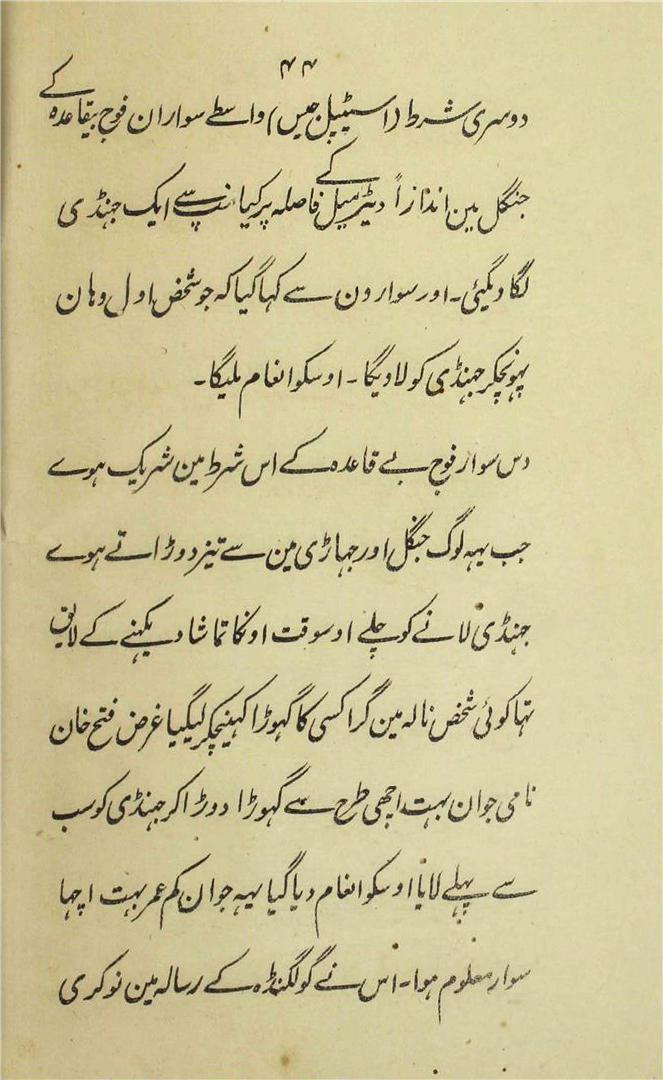 ۴۴
دوسری شرط (اسٹیپل چیس) واسطے سواران فوج بیقاعدہ کے
جنگل مین اندازاً دیڑ میل کے فاصلہ پر کیانپ سے ایک جہنڈی
لگا دیگئی۔ اور سوارون سے کہا گیا کہ جو شخص اول وہان
پہونچکر جہنڈی کو لاویگا۔ اوسکو انعام ملیگا۔
دس سوار فوج بے قاعدہ کے اس شرط مین شریک ہوے
جب یہہ لوگ جنگل اور جہاڑی مین سے تیز دوڑاتے ہوے
جہنڈی لانے کو چلے اوسوقت اونکا تماشا دیکہنے کے لایق
تہا کوئی شخص نالہ مین گرا کسی کا گہوڑا کہینچکر لیگیا غرض فتح خان
نامی جوان بہت اچھی طرح سے گہوڑا دوڑا کر جہنڈی کو سب
سے پہلے لایا اوسکو انعام دیا گیا یہہ جوان کم عمر بہت اچہا
سوار معلوم ہوا۔ اس نے گولکنڈہ کے رسالہ مین نوکری